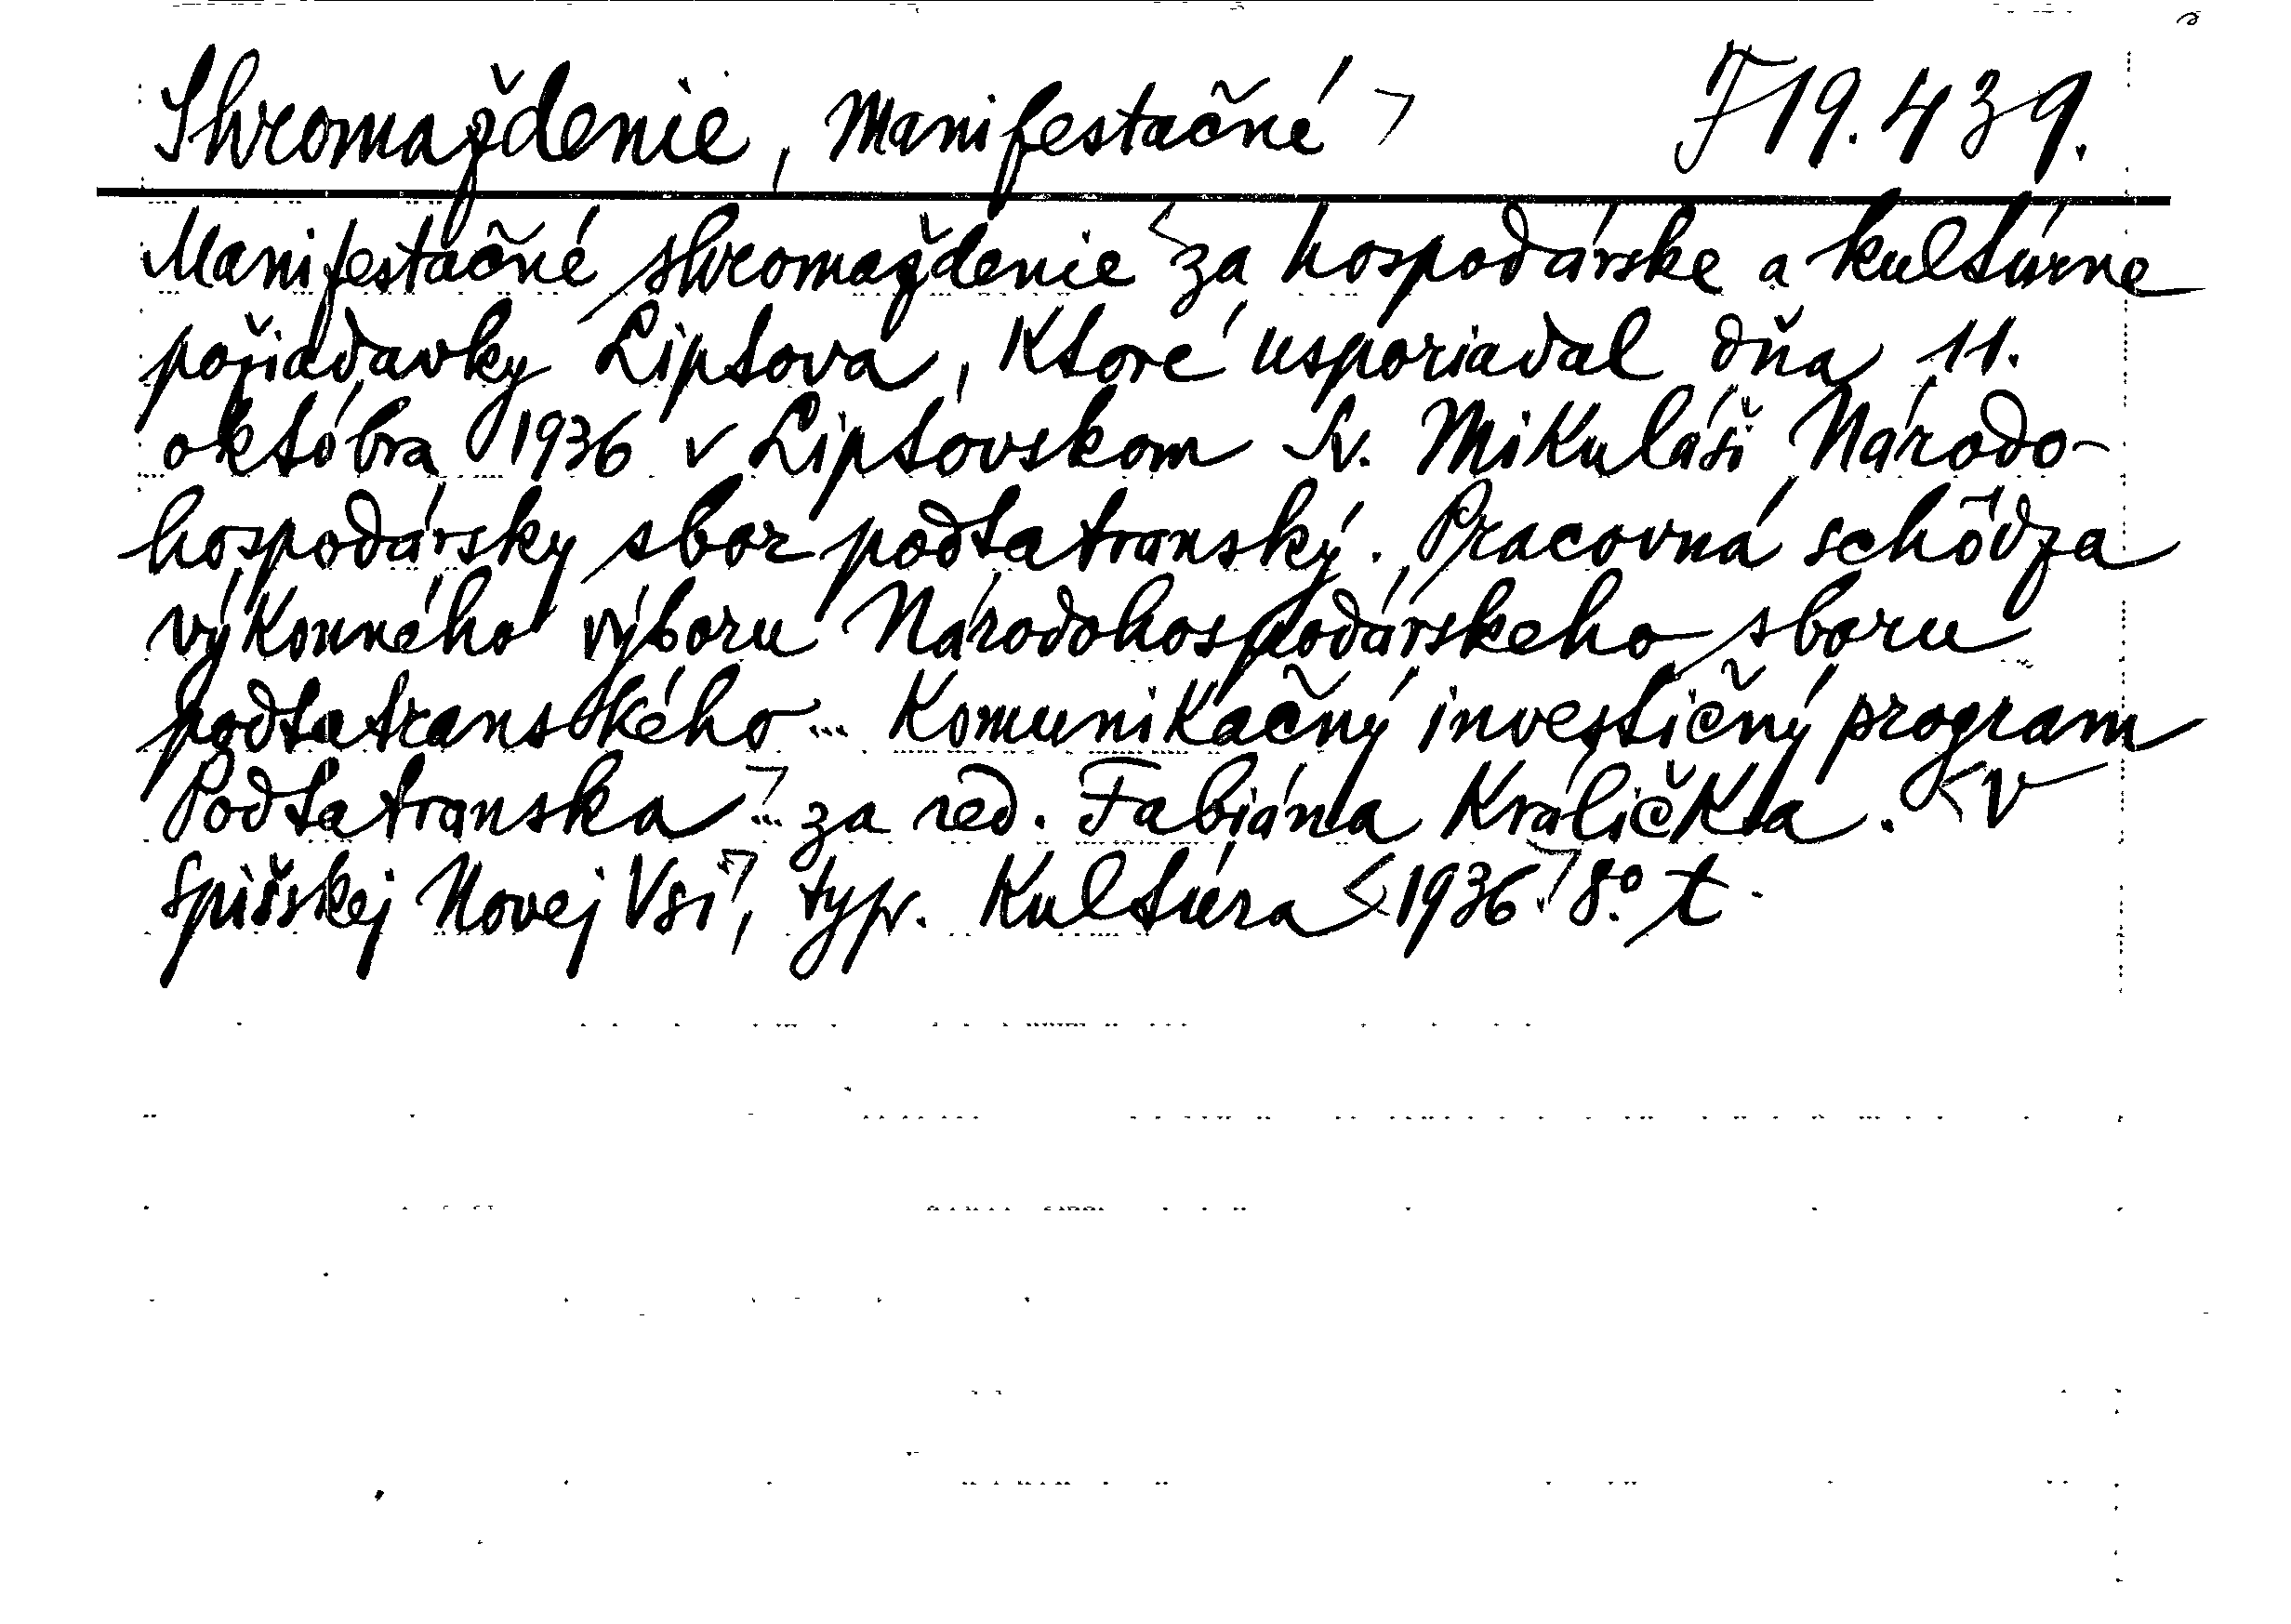 Shromaždenie, Manifestačné > J 19.439.
Manifestačné shromaždenie < za hospodárske a kultúrne
požiadavky Liptova, ktoré usporiadal dňa 11.
októbra 1936 v Liptovskom Sv. Mikuláši Národo-
hospodársky sbor podtatranský. Pracovná schôdza
výkonného výboru Národohospodárskeho sboru
podtatranského ... Komunikačný investičný program
Podtatranska > ... za red. Fabiána Králička. < V
Spišskej Novej Vsi >, typ. Kultúra < 1936. > 8°. t.